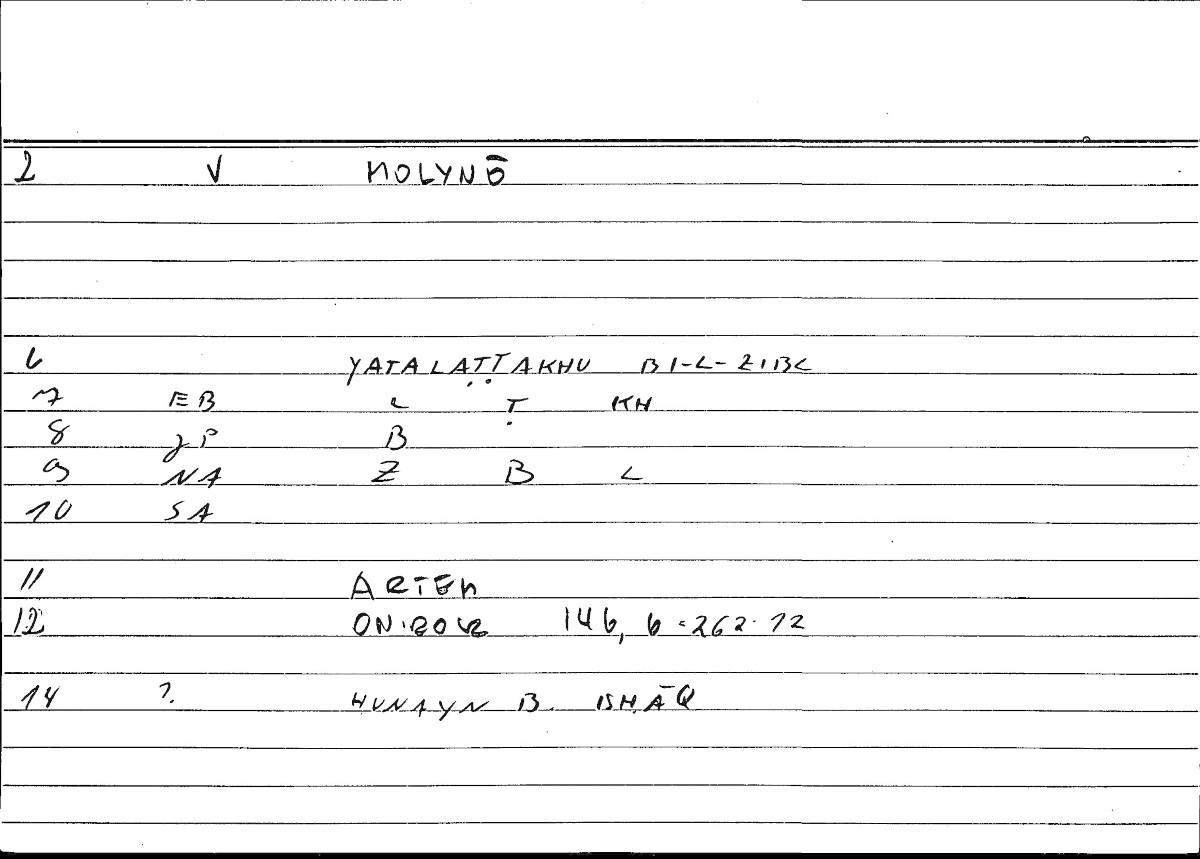 2 V MOLYNŌ
6 YATALAṬṬAKHU BI-L-ZIBL
7 EB L Ṭ KH
8 JP B
9 NA Z B L
10 SA
11 ARTEM
12 ONIROCR 146, 6 = 262.12
14 ?. ḤUNAYN B. ISḤĀQ